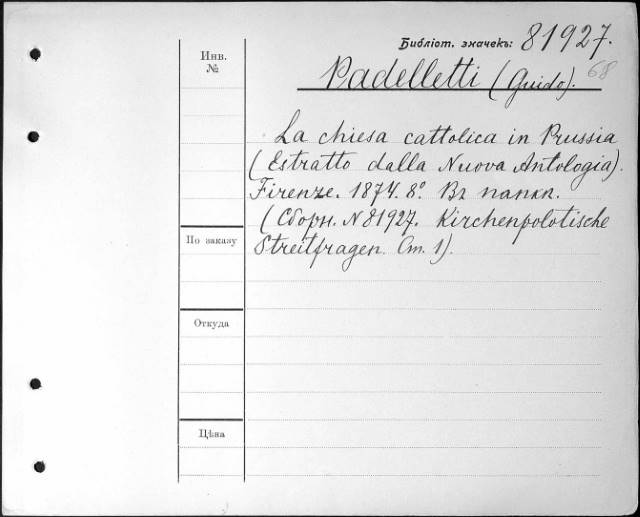 Библіот. значекъ: 81927.
Инв.
№
Padelletti (Guido). 68
La chiesa cattolica in Prussia
(Estratto dalla Nuova Antologia).
Firenze. 1874. 8º. Въ папкѣ.
(Сборн. № 81927. Kirchenpolotische
Streitfragen. Ст. 1).
По заказу
Откуда
Цѣна